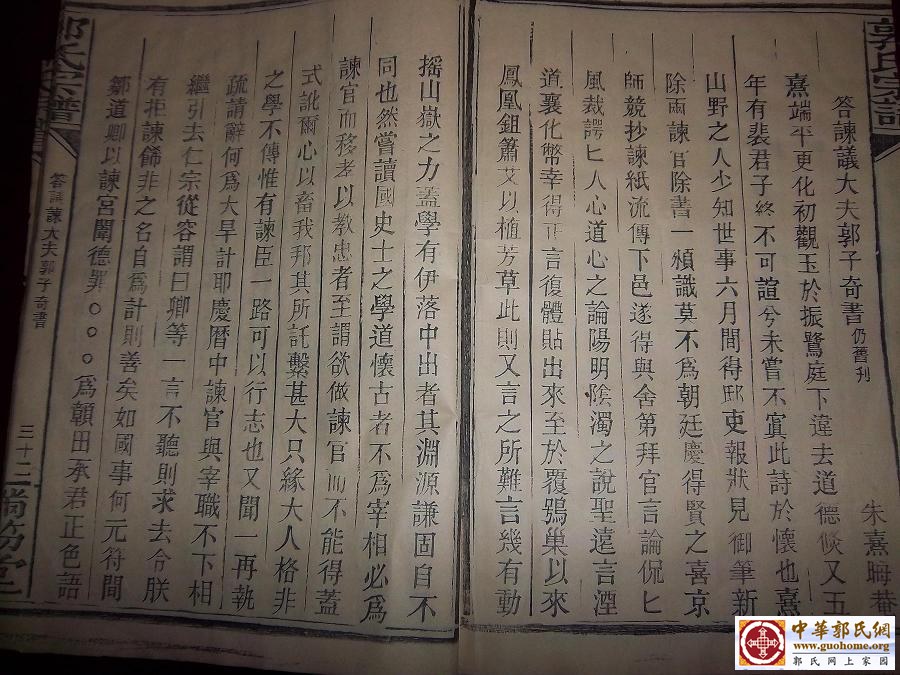 答諫議大夫郭子奇書 仍舊刋
朱熹晦菴
熹端平更化初觀玉於振鷺庭下違去道德倐又五
年有裴君子終不可諠兮未嘗不寘此詩於懷也熹
山野之人少知世事六月間得邸吏報狀見御筆新
除兩諫官除書一頒識莫不爲朝廷慶得賢之喜京
師競抄諫紙流傳下邑遂得與舍第拜官言論侃匕
風裁諤匕人心道心之論陽明陰濁之說聖遠言湮
道襄化幣幸得正言復體貼出來至於覆鴞巢以來
鳳凰鉏蕭艾以植芳草此則又言之所難言幾有動
搖山嶽之力蓋學有伊落中出者其淵源謙固自不
同也然嘗讀國史士之學道懷古者不爲宰相必爲
諫官而移孝以教忠者至謂欲做諫官而不能得蓋
式訛爾心以畜我邦其所託繫甚大只緣大人格非
之學不傳惟有諫臣一路可以行志也又聞一再執
疏請辭何爲大早計耶慶曆中諫官與宰職不下相
繼引去仁宗從容謂曰卿等一言不聽則求去令朕
有拒諫餙非之名自爲計則善矣如國事何元符間
鄒道卿以諫宮闈德罪○○○爲顛田承君正色語
郭氏宗譜
答諫大夫郭子奇書
三十二
尚笏堂
郭氏宗譜
中華郭氏網
www.guohome.org
郭氏網上家園